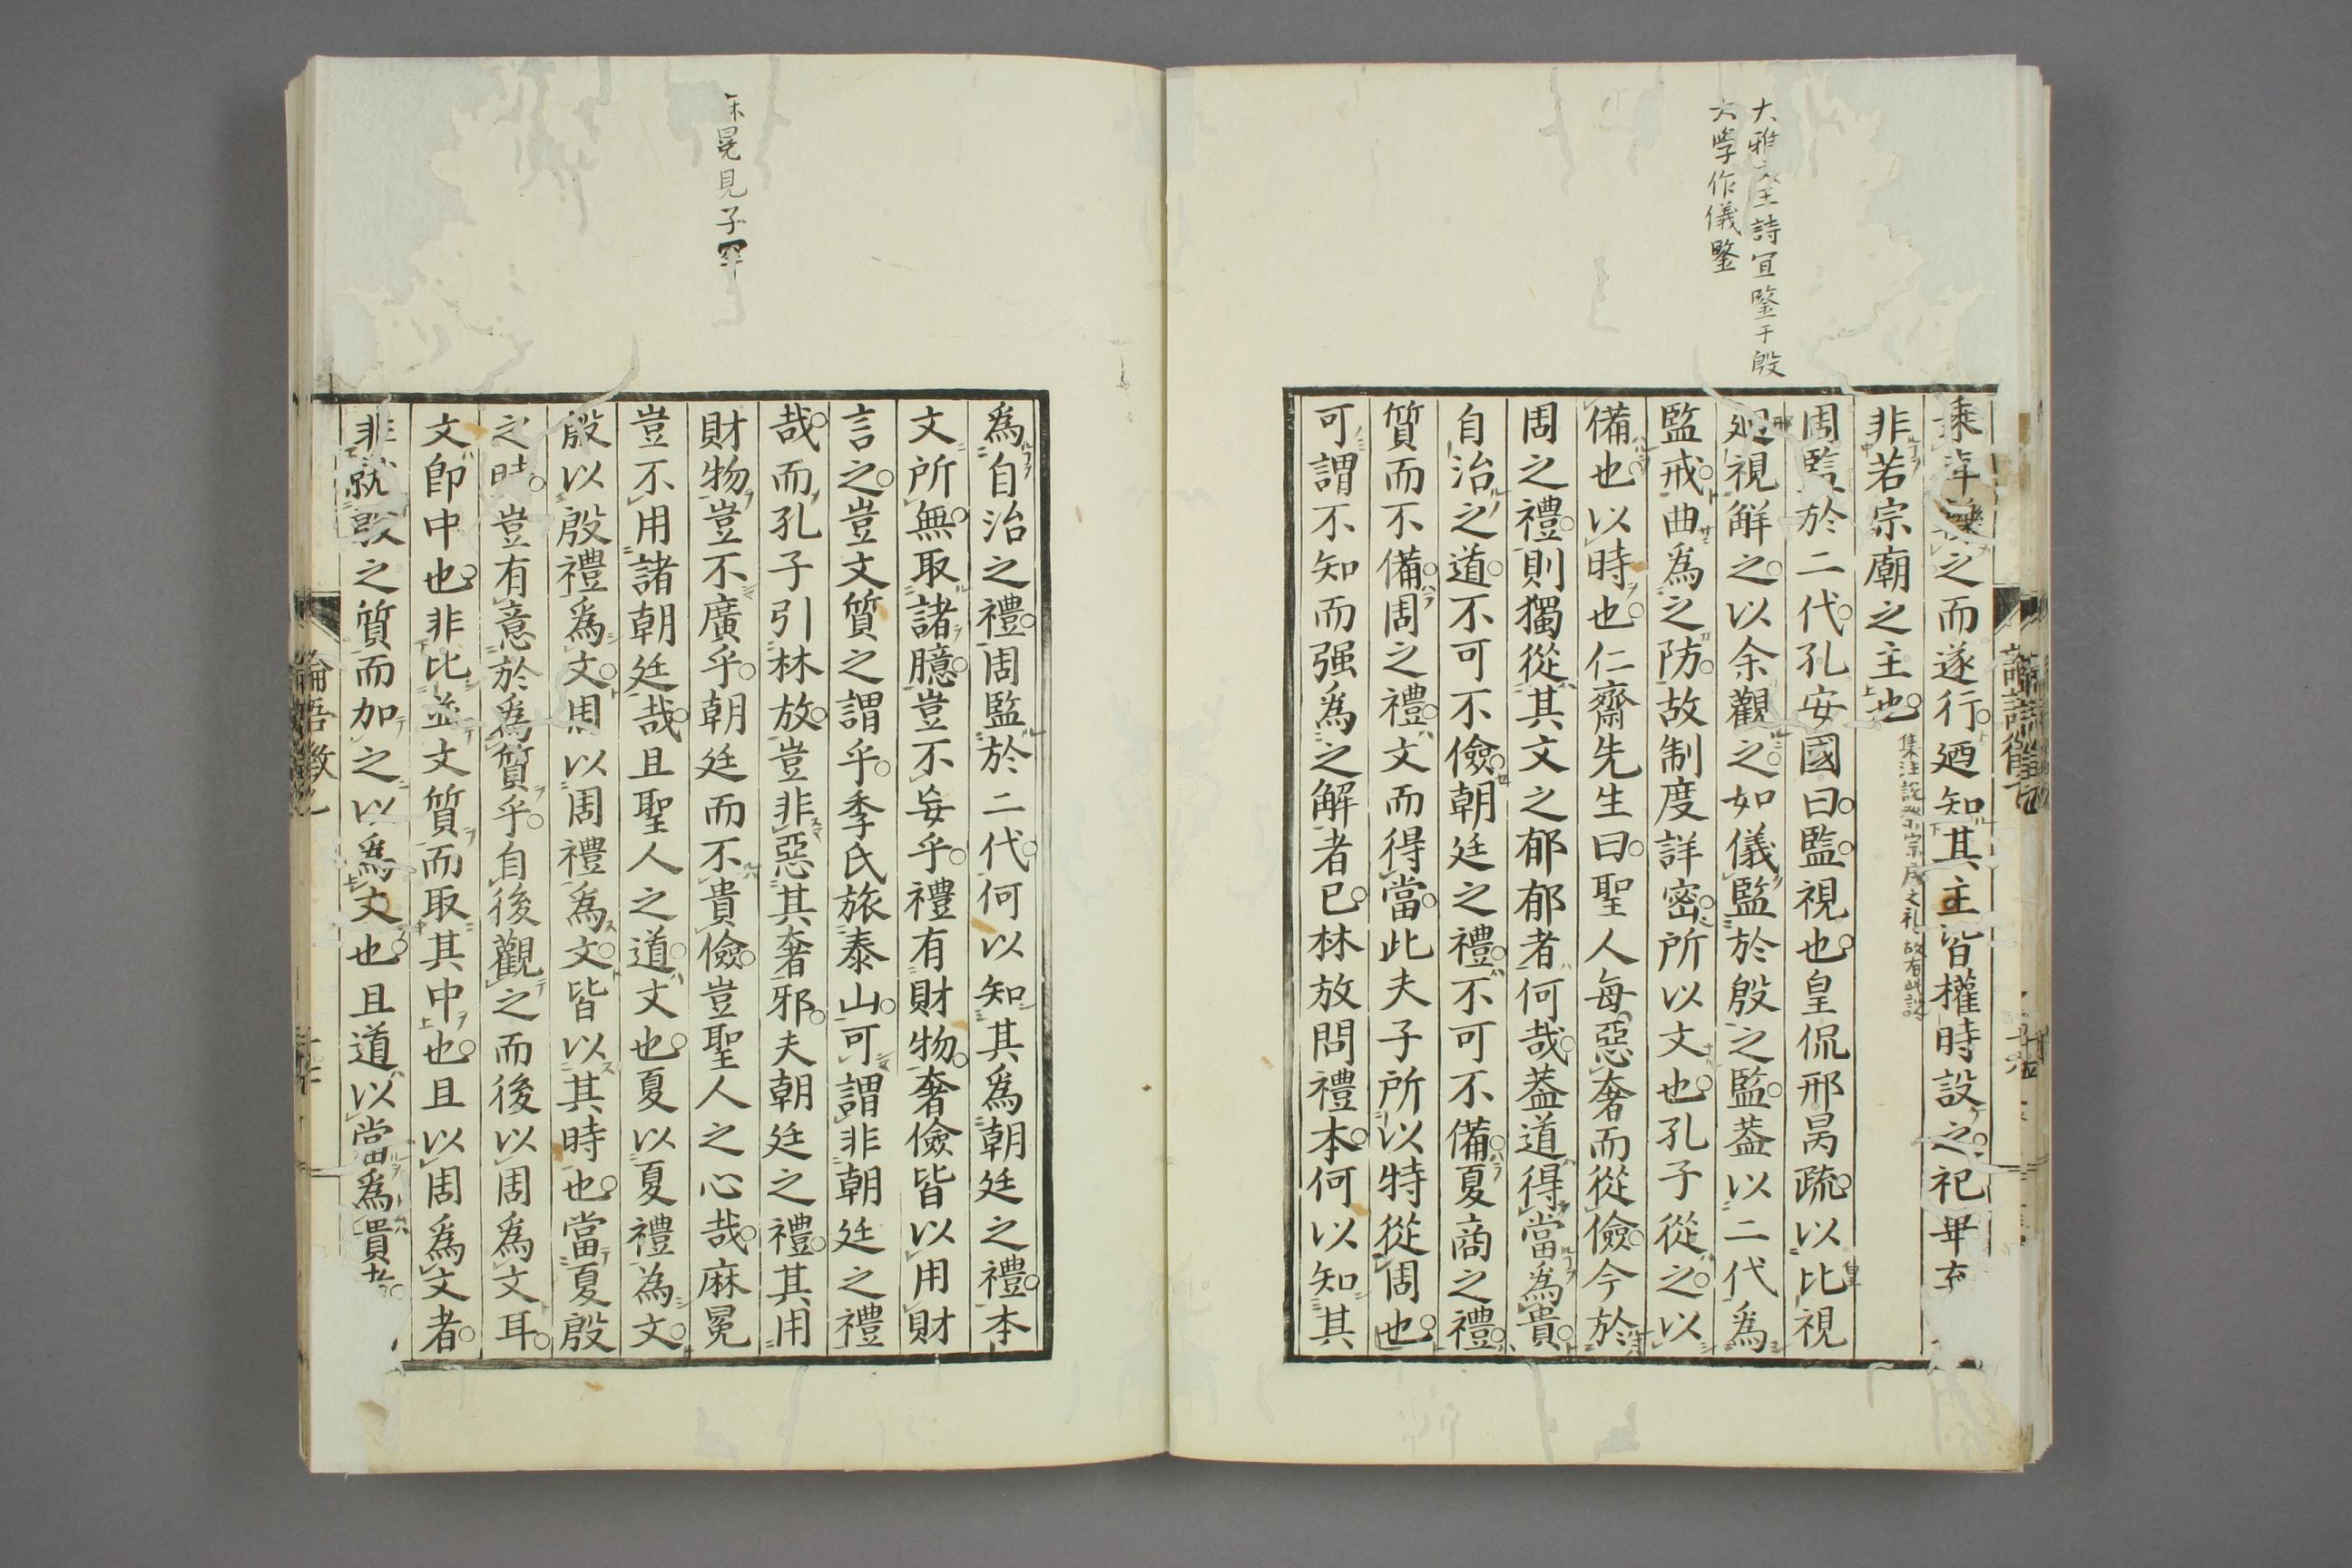 大雅文王詩宜鑒于殷
大學作儀鑒
乘之而遂行廼知其主皆權時設之祀畢
非若宗廟之主也
周監於二代孔安國曰監視也皇侃邢昺疏以比視
廻視解之以余觀之如儀監於殷之監葢以二代爲
監戒曲爲之防故制度詳密所以文也孔子從之以
備也以時也仁齋先生曰聖人每惡奢而從儉今於
周之禮則獨從其文之郁郁者何哉葢道得當爲貴
自治之道不可不儉朝廷之禮不可不備夏商之禮
質而不備周之禮文而得當此夫子所以特從周也
可謂不知而强爲之解者已林放問禮本何以知其
冕見子罕
爲自治之禮周監於二代何以知其爲朝廷之禮本
文所無取諸臆豈不妄乎禮有財物奢儉皆以用財
言之豈文質之謂乎季氏旅泰山可謂非朝廷之禮
哉而孔子引林放豈非惡其奢邪夫朝廷之禮其用
財物豈不廣乎朝廷而不貴儉豈聖人之心哉麻冕
豈不用諸朝廷哉且聖人之道文也夏以夏禮為文
殷以殷禮爲文周以周禮爲文皆以其時也當夏殷
之時豈有意於爲質乎自後觀之而後以周爲文耳
文卽中也非比並文質而取其中也且以周爲文者
非就殷之質而加之以爲文也且道以當爲貴
論語徵乙